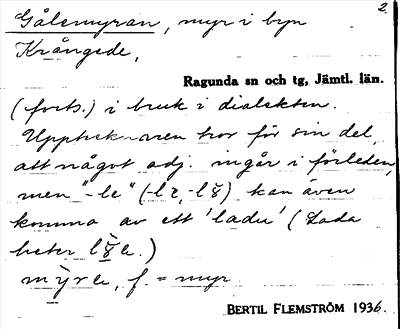 2.
Gålemyran, myr i byn
Krångede,
Ragunda sn och tg, Jämtl. län.
(forts.) i bruk i dialekten.
Upptecknaren tror för sin del,
att något adj. ingår i förleden,
men "-le" (-l kan även
komma av ett 'lade' (Lada
heter
f. = myr
BERTIL FLEMSTRÖM 1936.